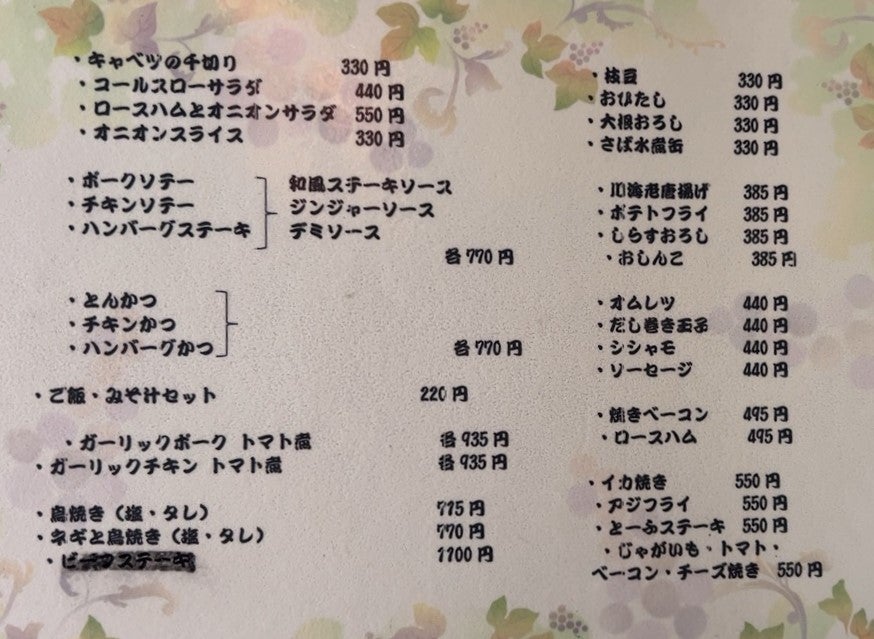 ・キャベツの千切り 330円
・コールスローサラダ 440円
・ロースハムとオニオンサラダ 550円
・オニオンスライス 330円
・ポークソテー 和風ステーキソース
・チキンソテー ジンジャーソース
・ハンバーグステーキ デミソース
各770円
・とんかつ
・チキンかつ
・ハンバーグかつ 各770円
・ご飯・みそ汁セット 220円
・ガーリックポーク トマト煮 各935円
・ガーリックチキン トマト煮 各935円
・鳥焼き（塩・タレ） 715円
・ネギと鳥焼き（塩・タレ） 770円
・ビーフステーキ 1100円
・枝豆 330円
・おひたし 330円
・大根おろし 330円
・さば水煮缶 330円
・川海老唐揚げ 385円
・ポテトフライ 385円
・しらすおろし 385円
・おしんこ 385円
・オムレツ 440円
・だし巻き玉子 440円
・シシャモ 440円
・ソーセージ 440円
・焼きベーコン 495円
・ロースハム 495円
・イカ焼き 550円
・アジフライ 550円
・とーふステーキ 550円
・じゃがいも・トマト・
ベーコン・チーズ焼き 550円